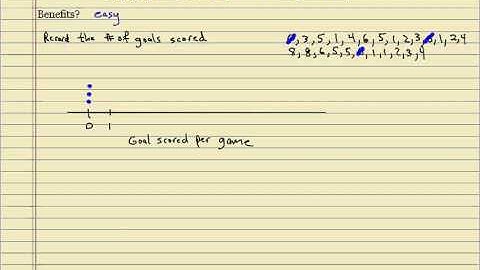 Benefits? easy
Record the # of goals scored
0,3,5,1,4,6,5,1,2,3,0,1,2,4
8,8,6,5,5,0,1,1,2,3,4
0 1
Goal scored per game